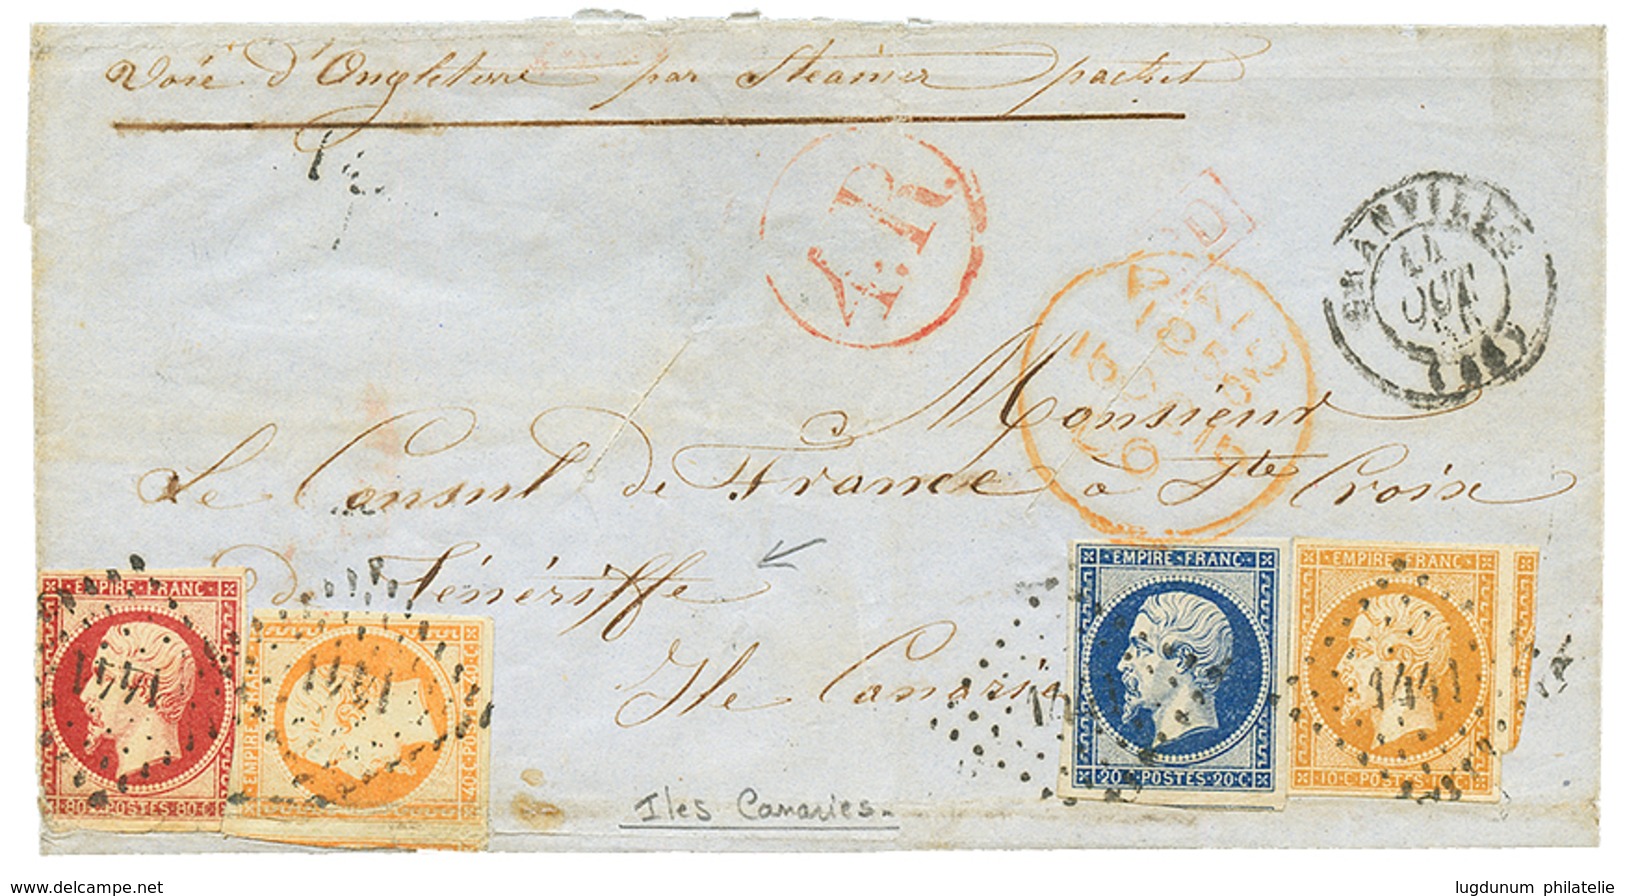 Voie d'Angleterre par Steamer packet
A.R.
PD
GRANVILLE
14
OCT
PAID
Monsieur
Le Consul de France à Ste Croix
de Ténériffe
Ile Canarie
EMPIRE FRANC
1441
80 C POSTES 80 C
EMPIRE FRANC
1441
40 C POSTES 40 C
EMPIRE FRANC
20 C POSTES 20 C
EMPIRE FRANC
1441
10 C POSTES 10 C
Iles Canaries
www.delcampe.net
lugdunum philatelie